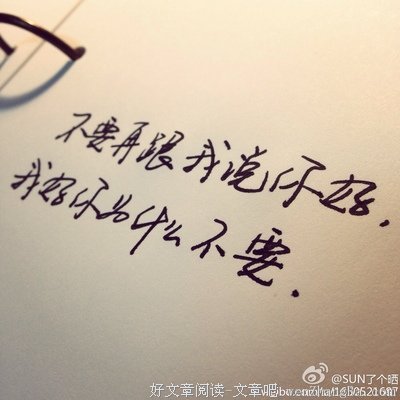 不要再跟我说你好.
我好你为什么不要.
@SUN了个晒
好文章阅读-文章吧